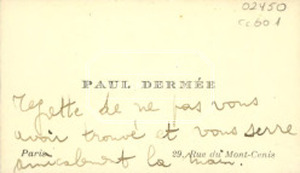 02450
PAUL DERMÉE
regrette de ne pas vous
avoir trouvé et vous serre
Paris 29, Rue du Mont-Cenis
amicalement la main.